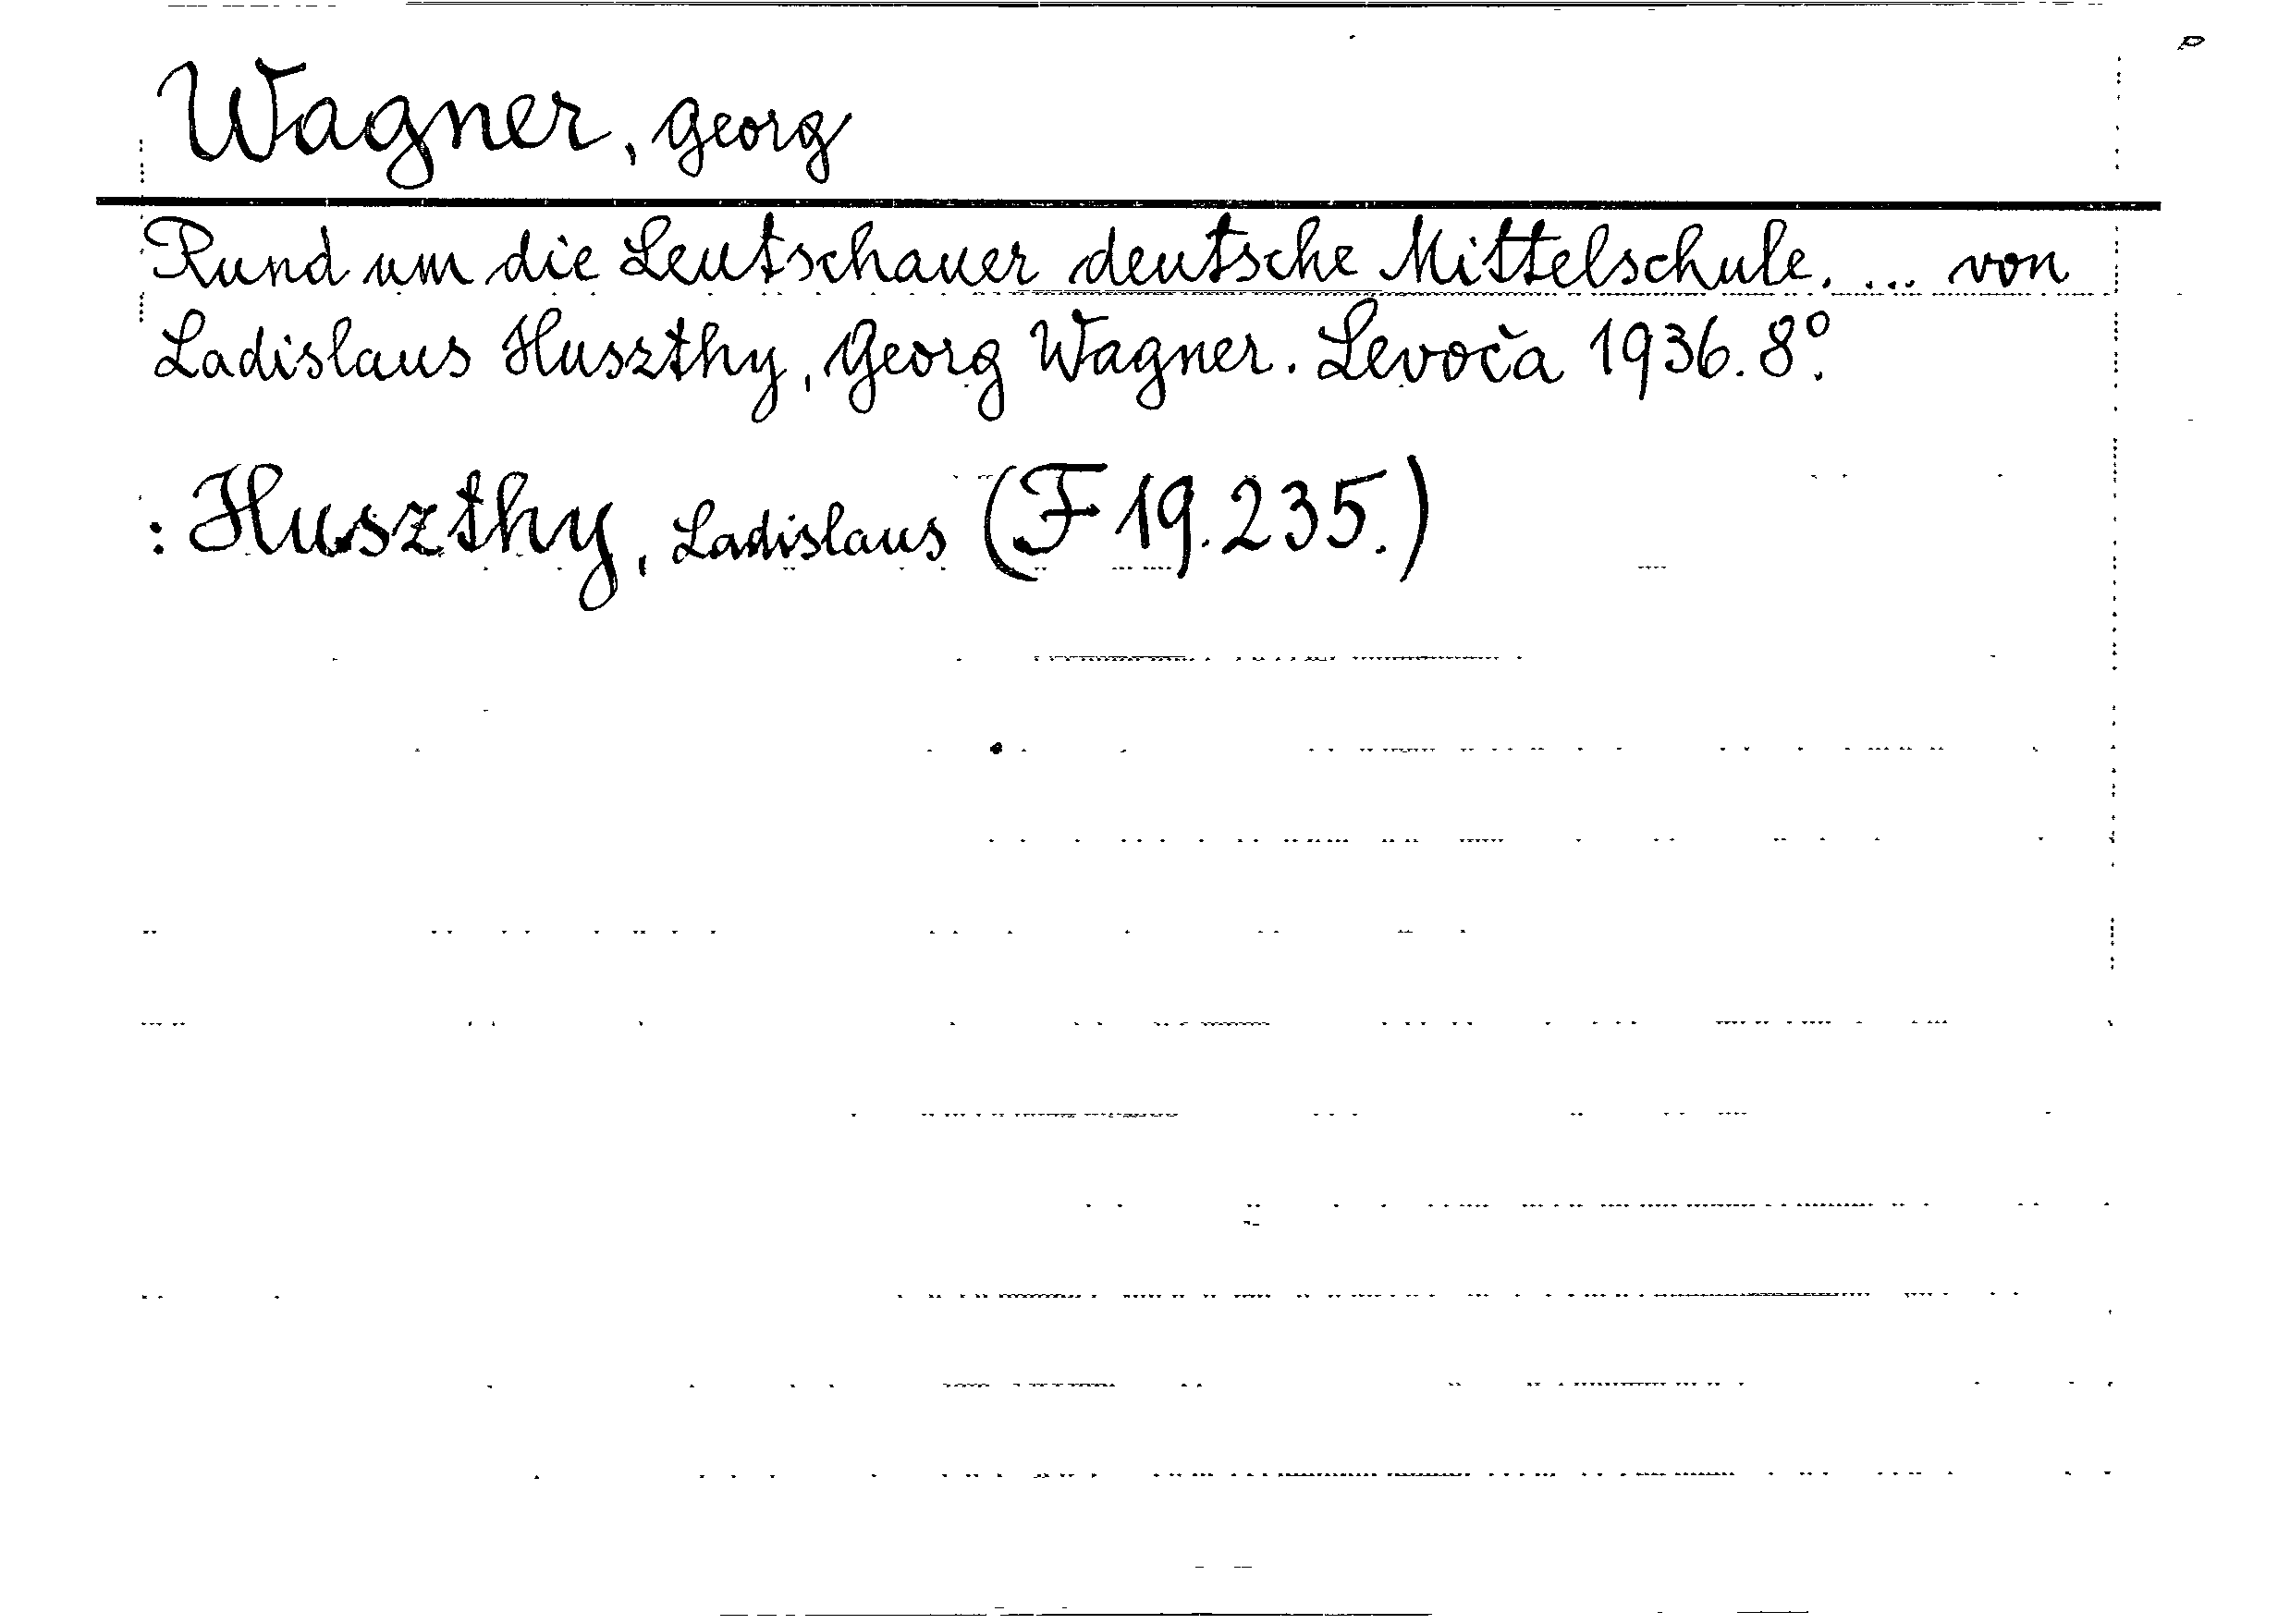 Wagner, Georg
Rund um die Leutschauer deutsche Mittelschule. ... von
Ladislaus Huszthy, Georg Wagner. Levoča 1936. 8°.
: Huszthy, Ladislaus (F 19.235.)